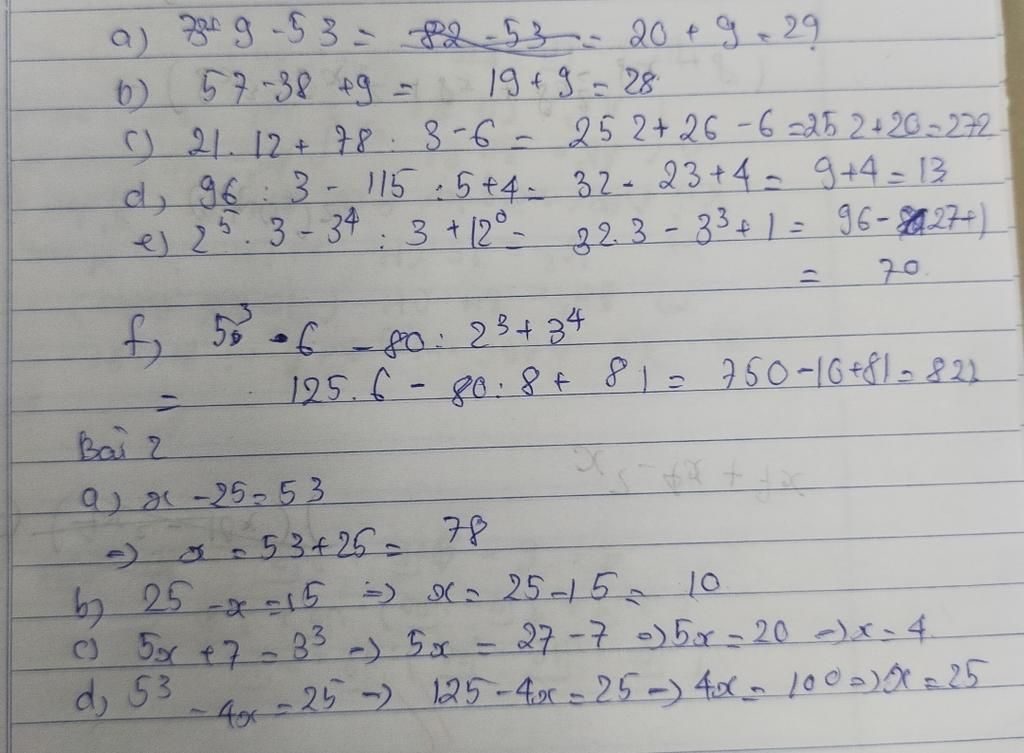 a) 73+9 - 53 = 82 - 53 = 20 + 9 = 29
b) 57 - 38 + 9 = 19 + 9 = 28
c) 21 . 12 + 78 : 3 - 6 = 252 + 26 - 6 = 252 + 20 = 272
d, 96 : 3 - 115 : 5 + 4 = 32 - 23 + 4 = 9 + 4 = 13
e) 2⁵ . 3 - 3⁴ : 3 + 12⁰ = 32.3 - 3³ + 1 = 96 - 27 + 1
= 70
f, 5³ . 6 - 80 : 2³ + 3⁴
= 125 . 6 - 80 : 8 + 81 = 750 - 10 + 81 = 821
Bài 2
a) x - 25 = 53
=> x = 53 + 25 = 78
b) 25 - x = 15 => x = 25 - 15 = 10
c) 5x + 7 = 3³ => 5x = 27 - 7 => 5x = 20 => x = 4
d, 5³ - 4x = 25 => 125 - 4x = 25 => 4x = 100 => x = 25